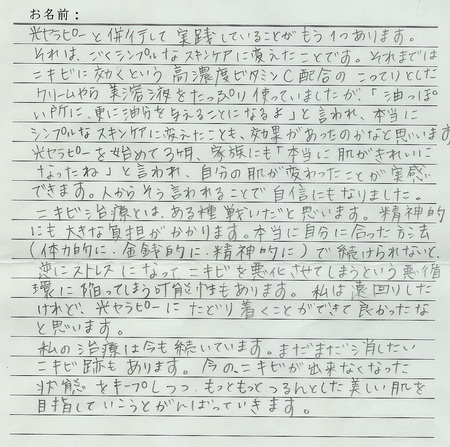 お名前：
光セラピーと併行して実践していることがもう1つあります。
それは、ごくシンプルなスキンケアに変えたことです。それまでは
ニキビに効くという高濃度ビタミンC配合のこってりとした
クリームやら美容液をたっぷり使っていましたが、「油っぽ
い所に、更に油分を与えることになるよ」と言われ、本当に
シンプルなスキンケアに変えたことも、効果があったのかなと思います
光セラピーを始めて3ヶ月、家族にも「本当に肌がきれいに
なったね」と言われ、自分の肌が変わったことが実感
できます。人からそう言われることで自信にもなりました。
ニキビ治療とは、ある種戦いだと思います。精神的
にも大きな負担がかかります。本当に自分に合った方法
(体力的に・金銭的に・精神的に)で続けられないと、
逆にストレスになってニキビを悪化させてしまうという悪循
環に陥ってしまう可能性もあります。私は遠回りした
けれど、光セラピーにたどり着くことができて良かったな
と思います。
私の治療は今も続いています。まだまだ消したい
ニキビ跡もあります。今のニキビが出来なくなった
状態をキープしつつ、もっともっとつるんとした美しい肌を
目指していこうとがんばっていきます。